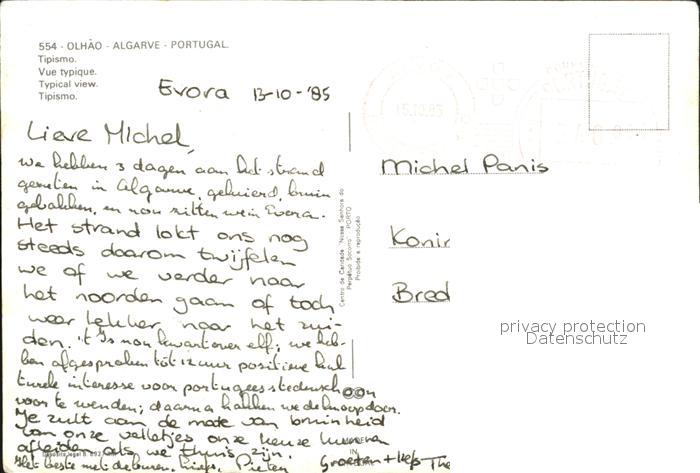 554 - OLHÃO - ALGARVE - PORTUGAL.
Tipismo.
Vue typique.
Typical view.
Tipismo.
Evora 13-10-'85
Lieve Michel,
we hebben 3 dagen aan het strand
gezeten in Algarve, geluierd, bruin
gebakken, en nou zitten we in Evora.
Het strand lokt ons nog
steeds daarom twijfelen
we of we verder naar
het noorden gaan of toch
weer lekker naar het zui-
den. 't Is nou kwart over elf; we heb-
ben afgesproken tót 12 uur positieve kul
turele interesse voor portugees stedenschoon
voor te wenden; daarna hakken we de knoop door.
Je zult aan de mate van bruinheid
van onze velletjes onze keuze kunnen
afleiden als we thuis zijn.
Het beste met de buren. Liefs, Pieten
Groeten + liefs The
Michel Panis
Konin
Bred
15.10.85
Centro de Caridade "Nossa Senhora do
Perpétuo Socorro" PORTO
Proibida a reprodução
privacy protection
Datenschutz